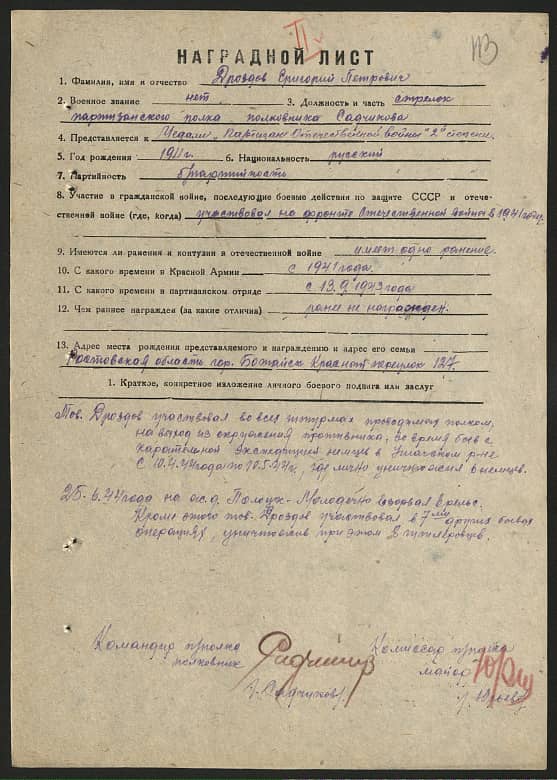 II
НАГРАДНОЙ ЛИСТ
1. Фамилия, имя и отчество Дроздов Григорий Петрович
2. Военное звание нет 3. Должность и часть стрелок
партизанского полка полковника Садчикова
4. Представляется к медали "Партизан Отечественной войны" 2 степени
5. Год рождения 1911 г. 6. Национальность русский
7. Партийность б/партийность
8. Участие в гражданской войне, последующие боевые действия по защите СССР и отече-
ственной войне (где, когда) участвовал на фронте Отечественной войны в 1941 году
9. Имеются ли ранения и контузии в отечественной войне имеет одно ранение.
10. С какого времени в Красной Армии с 1941 года.
11. С какого времени в партизанском отряде с 13.9.1943 года
12. Чем раннее награждея (за какие отличиа) ранее не награжден.
13. Адрес места рождения представляемого к награждению и адрес его семьи
Ростовская область гор. Батайск Красный переулок 127.
1. Краткое, конкретное изложение личного боевого подвига или заслуг
Тов. Дроздов участвовал во всех штурмах проводимых полком,
на выход из окружения противника, во время боев с
карательной экспедицией немцев в Ушачском р-не
с 10.4.44 года по 10.5.44 г., где лично уничтожил 6 немцев.
25.6.44 года на ж.д. Полоцк - Молодечно взорвал рельс.
Кроме этого тов. Дроздов участвовал в 7ми других боевых
операциях, уничтожив при этом 8 гитлеровцев.
Командир полка Комиссар полка
полковник майор
/Садчиков/ /Юрьев/